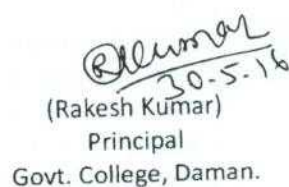 RKumar
30-5-16
(Rakesh Kumar)
Principal
Govt. College, Daman.